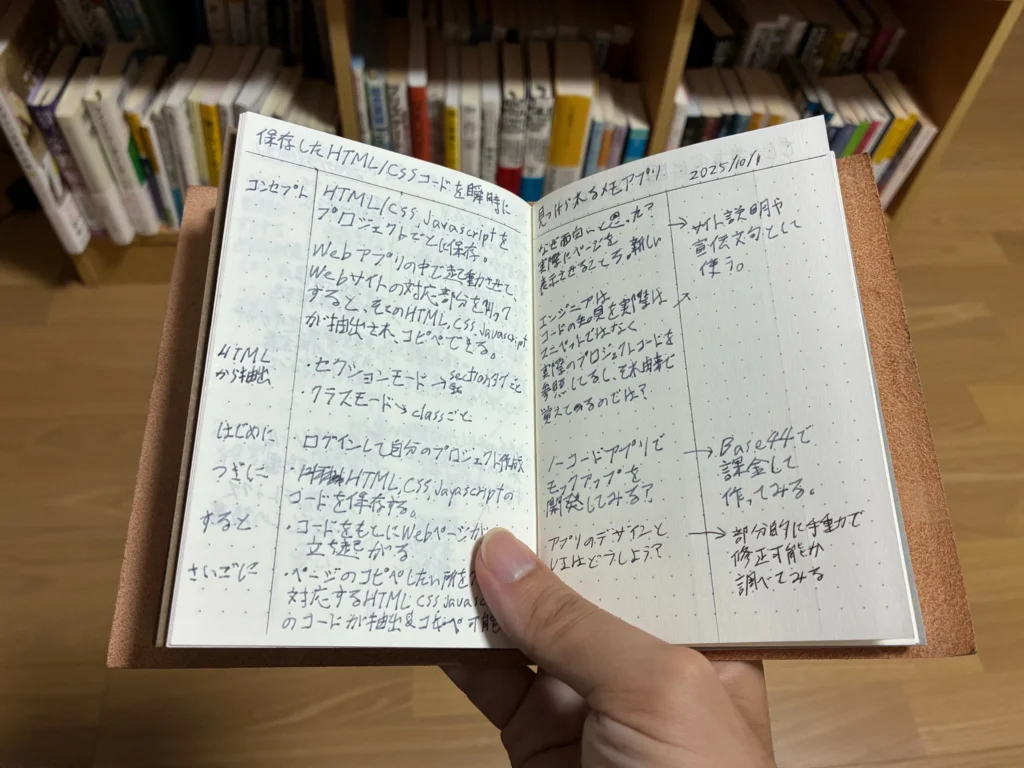 保存したHTML/CSSコードを瞬時に
見つけられるメモアプリ
2025/10/1
コンセプト
HTML/CSS, Javascriptを
プロジェクトごとに保存。
Webアプリの中で起動させて、
Webサイトの対応部分を
すると、そこのHTML, CSS, Javascript
が抽出され、コピペできる。
HTML
から抽出
・セクションモード→sectionタグごと
・クラスモード→classごと
はじめに
・ログインして自分のプロジェクト作成
つぎに
・HTML, CSS, Javascriptの
コードを保存する。
すると
・コードをもとにWebページが
立ち上がる
さいごに
・ページのコピペしたい所を
対応するHTML CSS Javasc
のコードが抽出&コピペ可能
なぜ面白いと思った?
実際にページを
表示させるところ。新しい
エンジニアは
コードの知見を実際は
スニペットではなく
実際のプロジェクトコードを
参照してるし、それ由来で
覚えてるのでは?
ノーコードアプリで
モックアップを
開発してみる?
アプリのデザインと
UIはどうしよう?
→サイト説明や
宣伝文句として
使う。
→Base44で
課金して
作ってみる。
→部分的に手動で
修正可能か
調べてみる